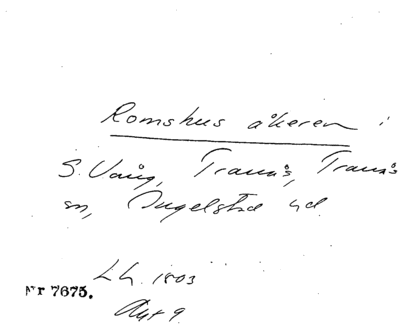 Romshus åkeren i
S. Vång, Tranås, Tranås
sn, Ingelstad hd.
LH. 1803
Nr 7675.
Akt 9.